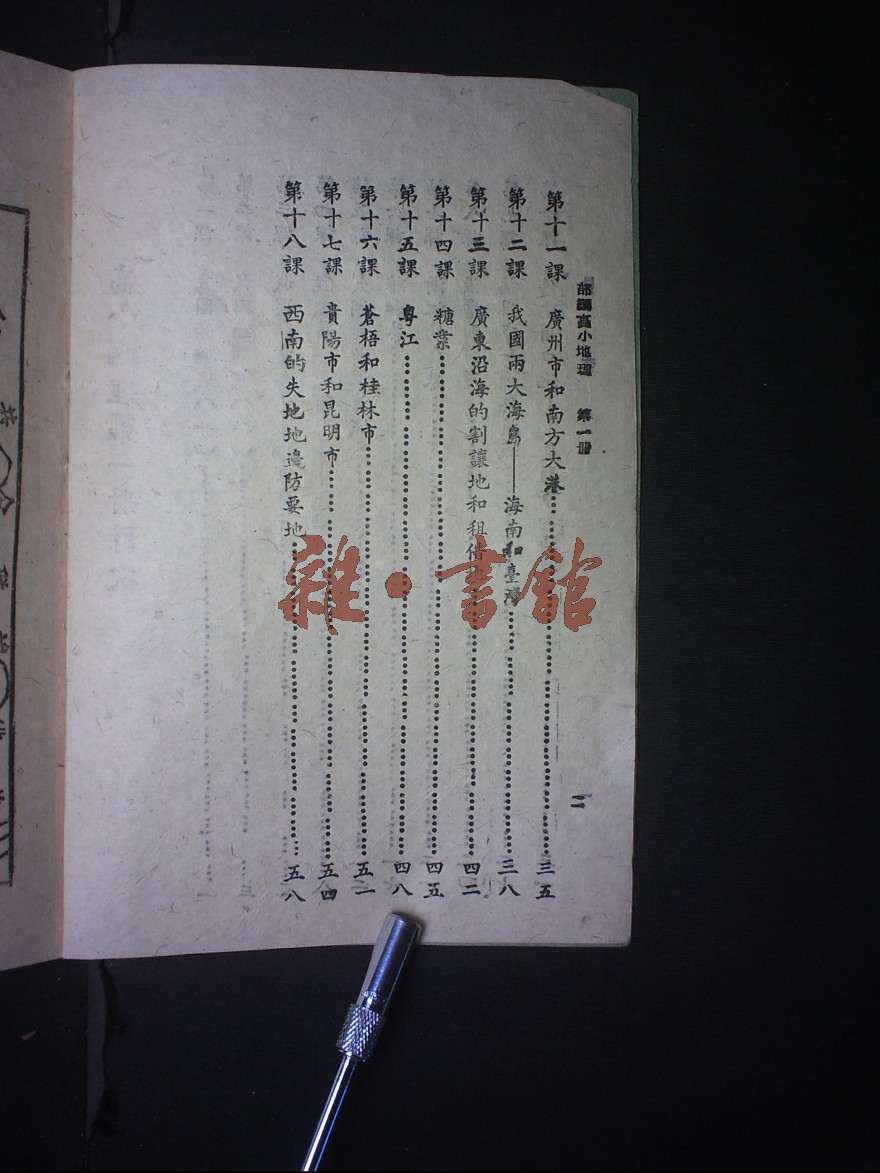 部編高小地理 第一冊
二
第十一課 廣州市和南方大港……三五
第十二課 我國兩大海島——海南和臺灣……三八
第十三課 廣東沿海的割讓地和租借地……四二
第十四課 糖業……四五
第十五課 粵江……四八
第十六課 蒼梧和桂林市……五二
第十七課 貴陽市和昆明市……五四
第十八課 西南的失地地邊防要地……五八
雜·書館